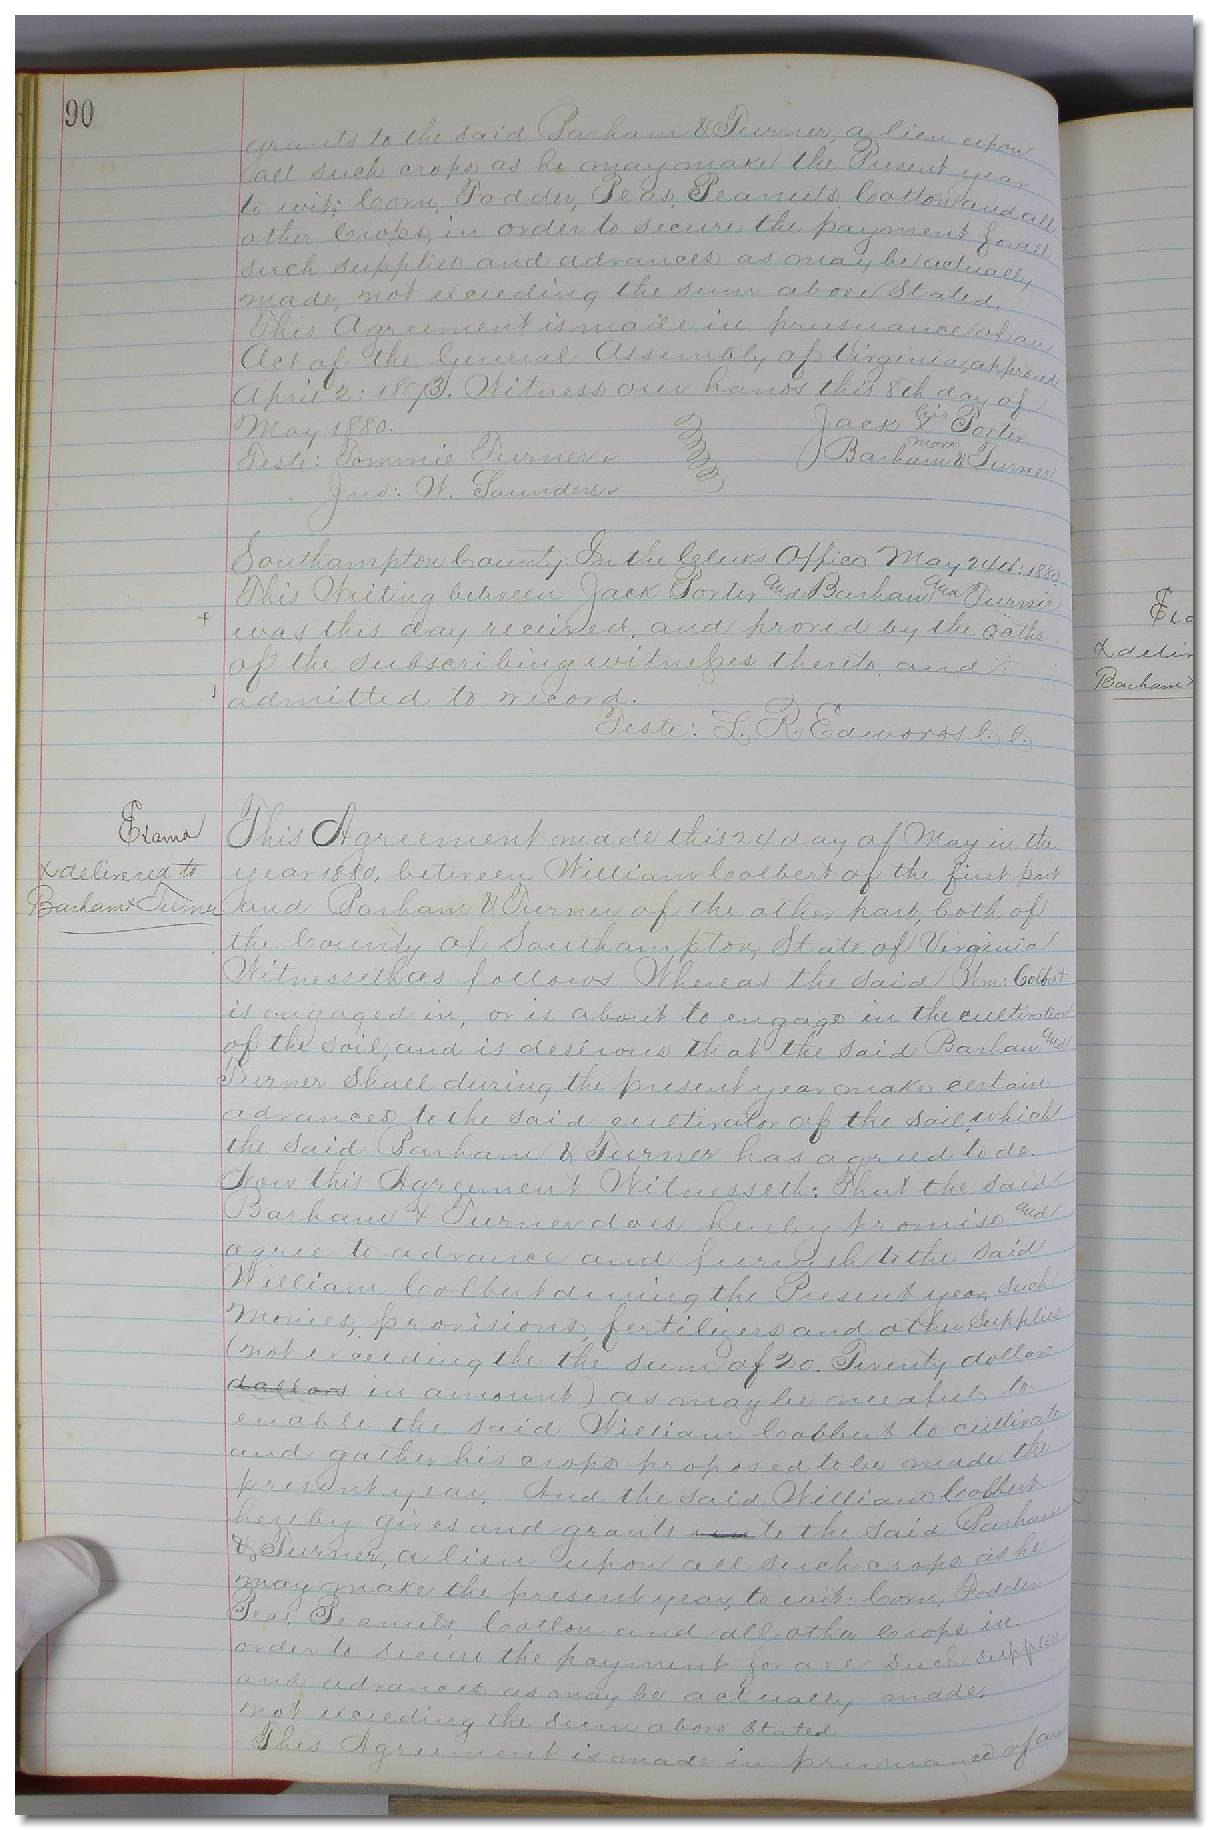 90
grants to the said Barham & Turner, a lien upon
all such crops as he may make the Present year
to wit: Corn, Fodder, Peas, Peanuts Cotton and all
other Crops, in order to secure the payment for all
such supplies and advances as may be actually
made, not exceeding the sum above Stated.
This Agreement is made in prusuance of an
Act of the General Assembly of Virginia, approved
April 2: 1873. Witness our hands this 8th day of
May 1880.
Jack his x mark Porter
Teste: Tommie Turner
Barham & Turner
Jno: W. Saunders
Southampton County: In the Clerks Office May 24th: 1880
This Writing between Jack Porter and Barham and Turner
was this day received, and proved by the oaths
of the subscribing witnesses thereto and
admitted to record.
Teste: L. R. Edwards C. C.
Examd
& delivered to
Barham & Turner
This Agreement made this 24 day of May in the
year 1880, between William Colbert of the first part
and Barham & Turner of the other part, both of
the County of Southampton, State of Virginia
Witnesseth as follows Whereas the said Wm: Colbert
is engaged in, or is about to engage in the cultivation
of the soil, and is desirous that the said Barham and
Turner Shall during the present year make certain
advances to the said cultivator of the soil, which
the said Barham & Turner has agreed to do.
Now this Agreement Witnesseth: That the said
Barham & Turner does hereby promise and
agree to advance and furnish to the said
William Colbert during the Present year, such
Monies, provisions, fertilizers and other Supplies
(not exceeding the the sum of 20. Twenty dollars
dollars in amount) as may be needful to
enable the said William Colbert to cultivate
and gather his crops proposed to be made the
present year. And the said William Colbert
hereby gives and grants to the said Barham
& Turner, a lien upon all such crops as he
may make the present year, to wit: Corn, Fodder
Peas, Peanuts, Cotton and all other Crops in
order to secure the payment for all such supplies
and advances as may be actually made,
not exceeding the sum above Stated
This Agreement is made in prusuance of an
Exa
& deliv
Barham &